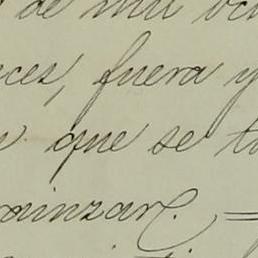 de mil
ces, fuera y
que se
minzar. =